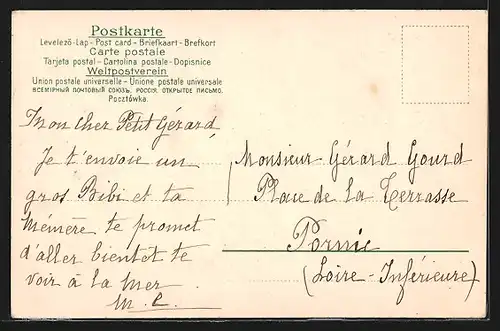 Postkarte
Levelező-Lap - Post card - Briefkaart - Brefkort
Carte postale
Tarjeta postal - Cartolina postale - Dopisnice
Weltpostverein
Union postale universelle - Unione postale universale
ВСЕМІРНЫЙ ПОЧТОВЫЙ СОЮЗЪ. РОССІЯ. ОТКРЫТОЕ ПИСЬМО.
Pocztówka.
Mon cher Petit Gérard,
Je t'envoie un
gros Bibi et ta
Mémère te promet
d'aller bientot te
voir à la mer
M. C.
Monsieur Gérard Gourd
Place de la Terrasse
Pornic
(Loire-Inférieure)